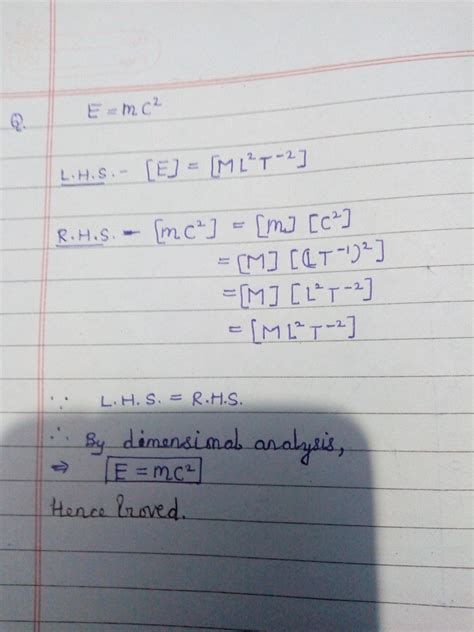 Q. E = mC²
L.H.S. - [E] = [ML²T⁻²]
R.H.S. - [mC²] = [m] [C²]
= [M] [(LT⁻¹)²]
= [M] [L²T⁻²]
= [ML²T⁻²]
∵ L.H.S. = R.H.S.
∴ By dimensional analysis,
⇒ E = mC²
Hence Proved.